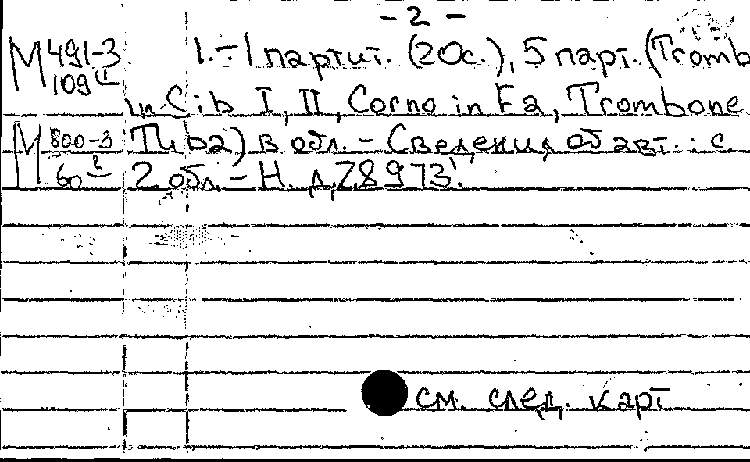 - 2 -
М 491-3 1.- 1 партит. (20с.), 5 парт. (Tromb
109
in Sib I, II, Corno in Fa, Trombone
М 800-3 Tuba) в обл. - Сведения об авт.: с.
60 2 обл. - Н.д. 78973.
см. след. карт